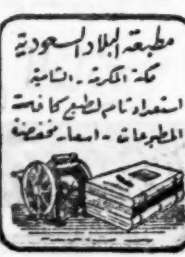 مطبعة البلاد السعودية
مكة المكرمة - الشامية
استعداد تام لطبع كافة
المطبوعات - اسعار مخفضة